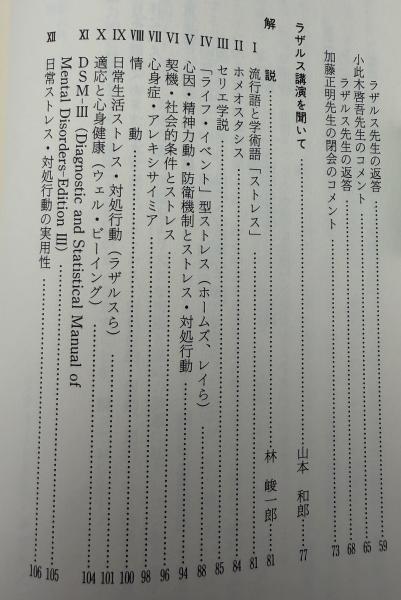 ラザルス先生の返答……………59
小此木啓吾先生のコメント……………65
ラザルス先生の返答……………68
加藤正明先生の閉会のコメント……………73
ラザルス講演を聞いて……………山本 和郎……77
解 説……………林 峻一郎……81
Ⅰ 流行語と学術語「ストレス」……………81
Ⅱ ホメオスタシス……………84
Ⅲ セリエ学説……………85
Ⅳ 「ライフ・イベント」型ストレス（ホームズ、レイら）……………88
Ⅴ 心因・精神力動・防衛機制とストレス・対処行動……………94
Ⅵ 契機・社会的条件とストレス……………96
Ⅶ 心身症・アレキシサイミア……………98
Ⅷ 情 動……………100
Ⅸ 日常生活ストレス・対処行動（ラザルスら）……………101
Ⅹ 適応と心身健康（ウェル・ビーイング）……………104
Ⅺ DSM-Ⅲ（Diagnostic and Statistical Manual of
Mental Disorders-Edition Ⅲ）……………105
Ⅻ 日常ストレス・対処行動の実用性……………106